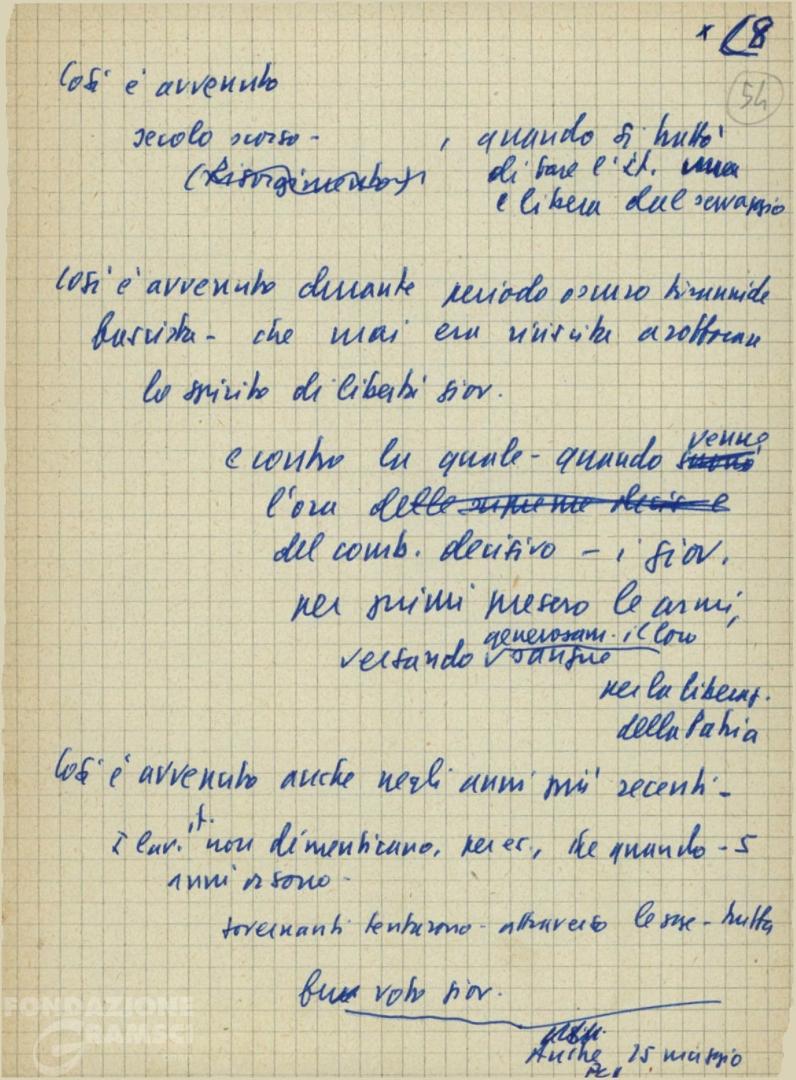 x (8
54
Così è avvenuto
secolo scorso - , quando si trattò
(Risorgimento) di fare l'It. una
e libera dal servaggio
Così è avvenuto durante periodo oscuro tirannide
fascista - che mai era riuscita a soffocare
lo spirito di libertà giov.
e contro la quale - quando venne
l'ora delle supreme decis e
del comb. decisivo - i giov.
per primi presero le armi,
versando generosam. il loro
sangue
per la liberaz.
della Patria
Così è avvenuto anche negli anni più recenti -
I lav. it. non dimenticano, per es., che quando - 5
anni or sono -
governanti tentarono - attraverso legge - truffa
voto giov.
Anche 25 maggio
per
FONDAZIONE
GRAMSCI